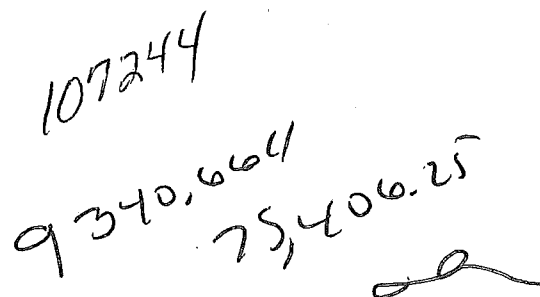 107244
9340.664
75,406.25